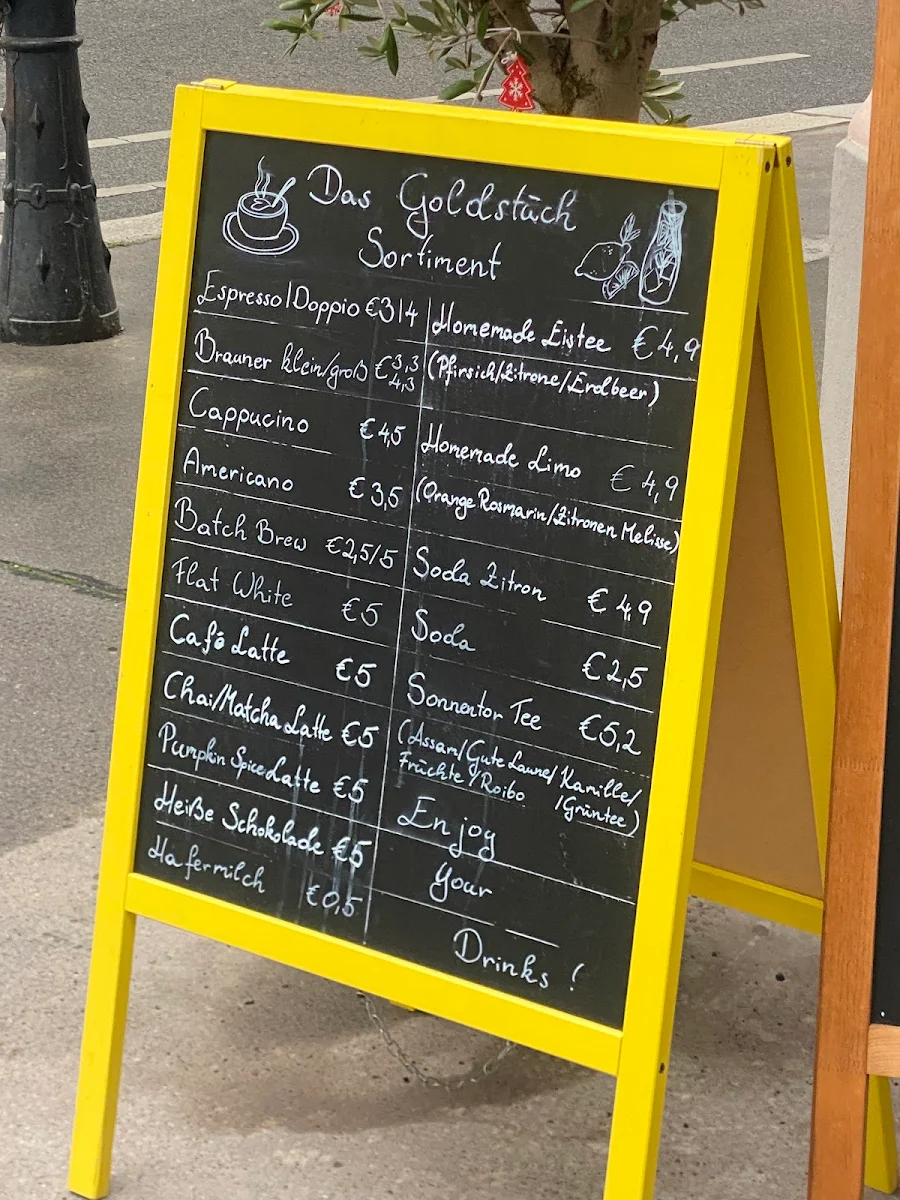 Das Goldstück
Sortiment
Espresso/Doppio €3/4
Brauner klein/groß €3,3
4,3
Cappucino €4,5
Americano €3,5
Batch Brew €2,5/5
Flat White €5
Café Latte €5
Chai/Matcha Latte €5
Pumpkin Spice Latte €5
Heiße Schokolade €5
Hafermilch €0,5
Homemade Eistee €4,9
(Pfirsich/Zitrone/Erdbeer)
Homemade Limo €4,9
(Orange Rosmarin/Zitronen Melisse)
Soda Zitron €4,9
Soda €2,5
Sonnentor Tee €5,2
(Assam/Gute Laune/Kamille/
Früchte/Roibo /Grüntee)
Enjoy
Your
Drinks!